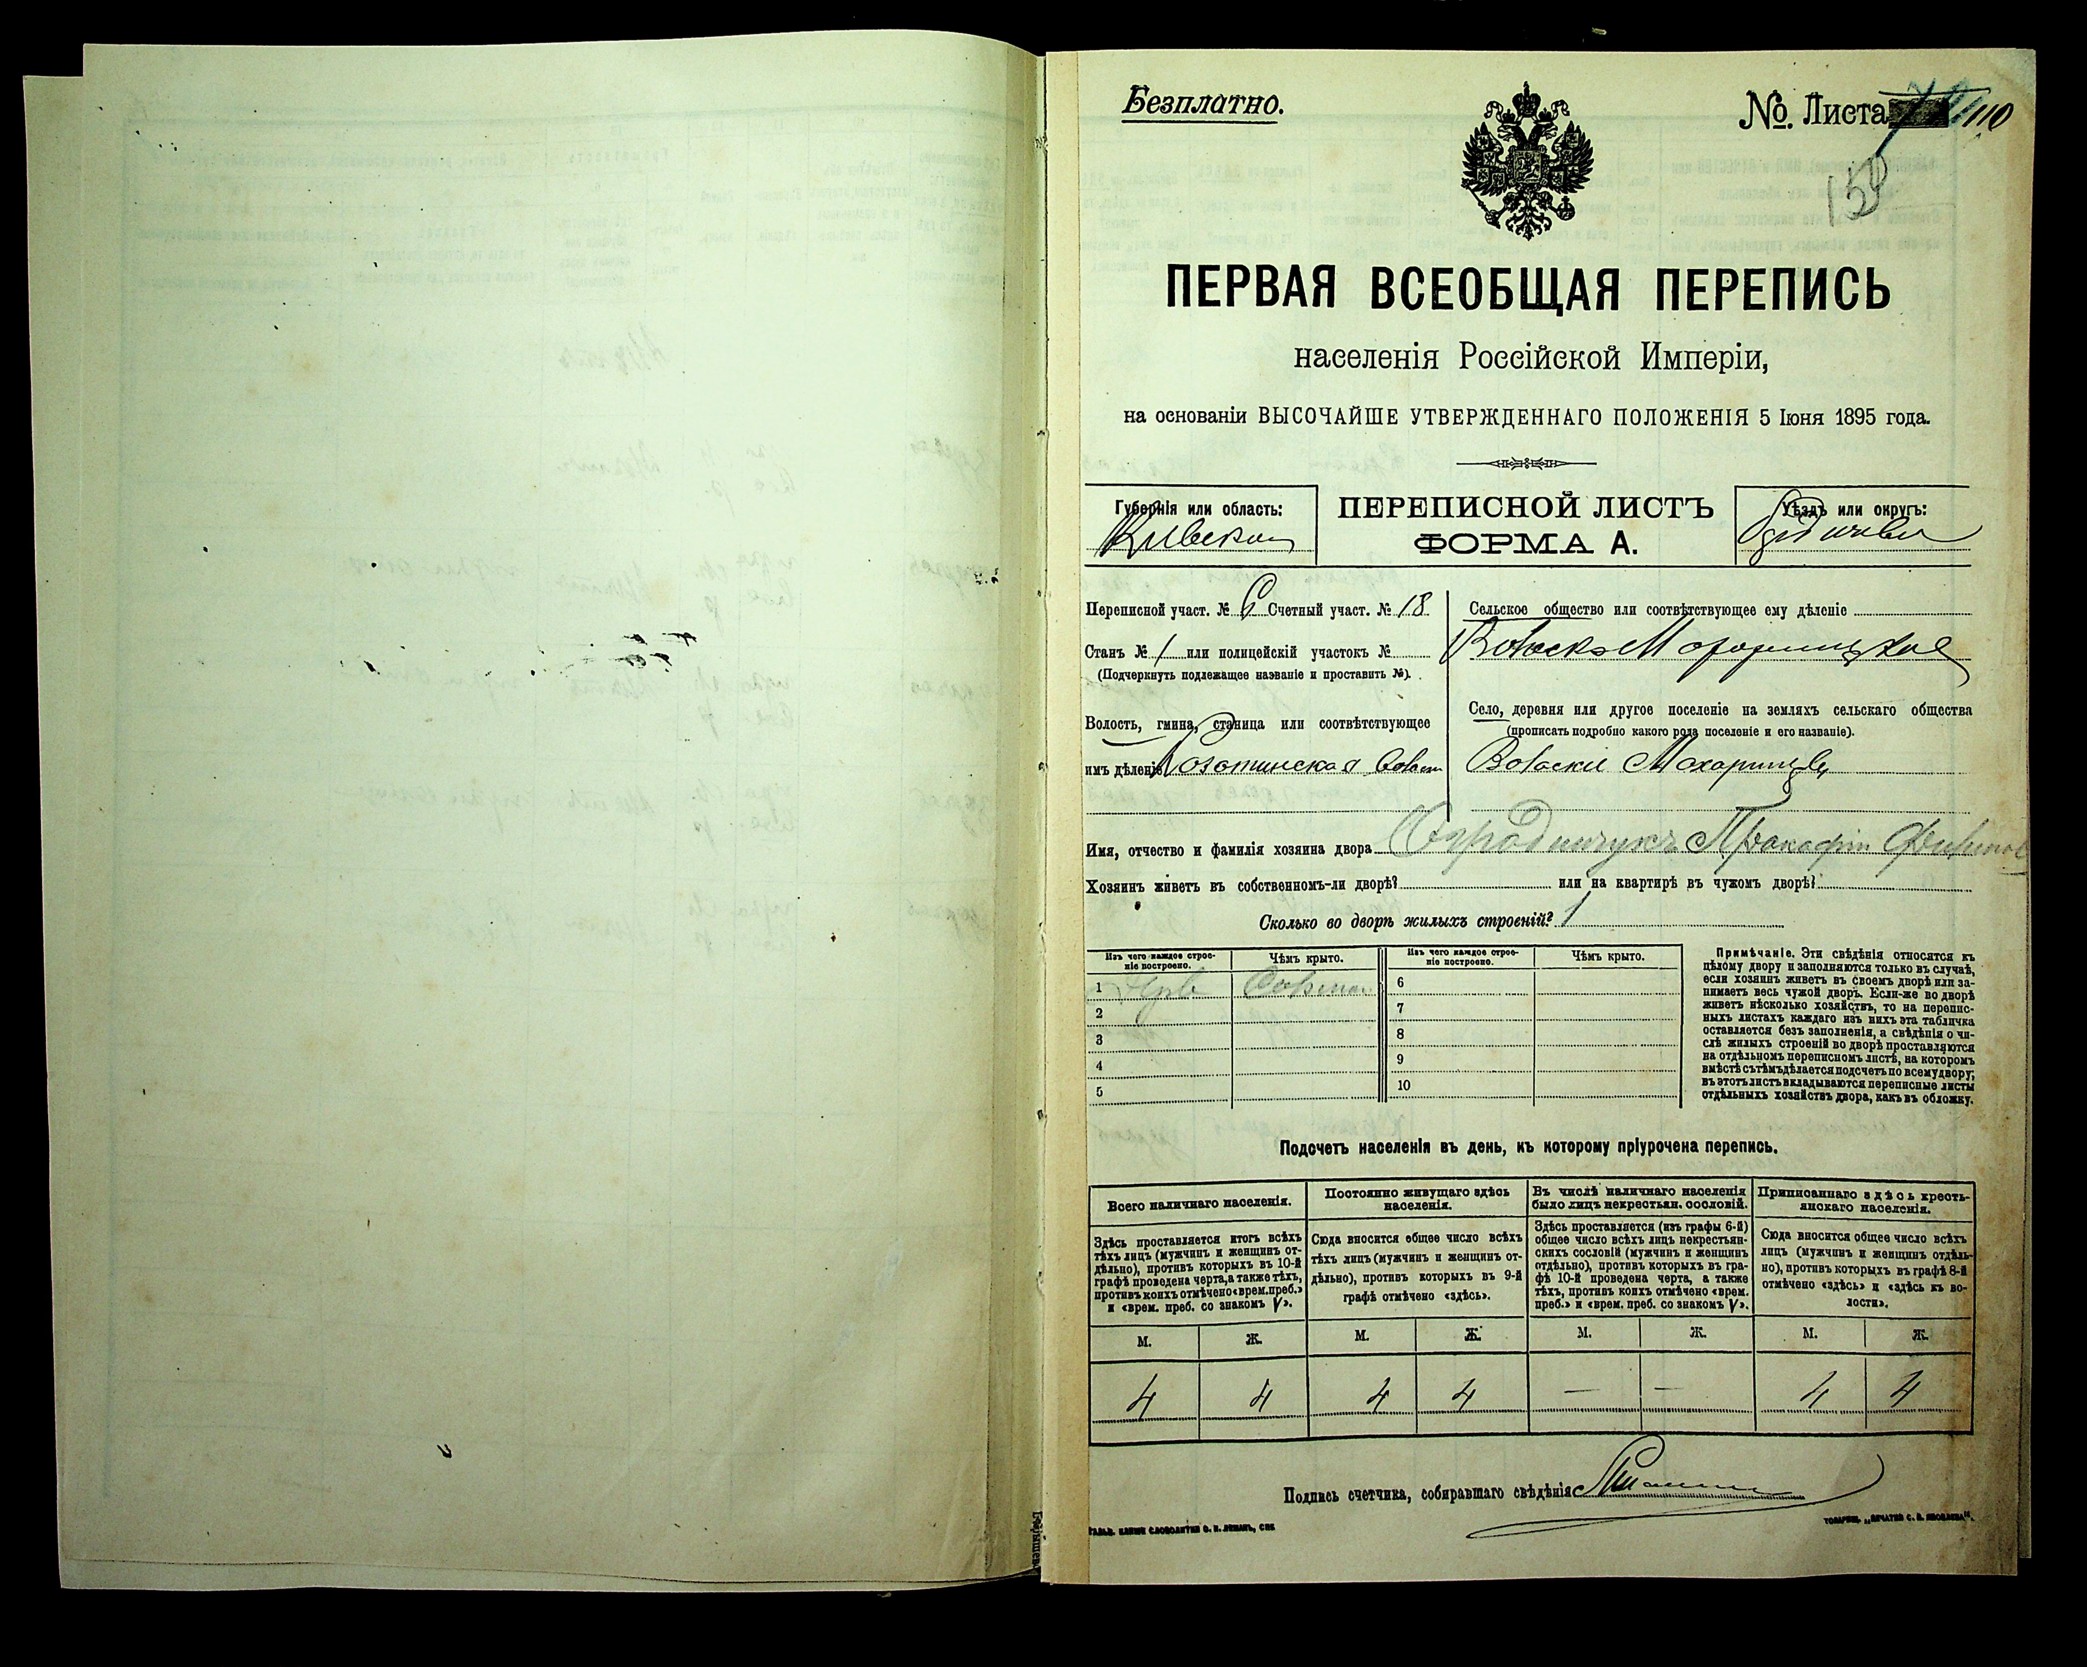 Безплатно.
№ Листа 110
159
ПЕРВАЯ ВСЕОБЩАЯ ПЕРЕПИСЬ
населенія Россійской Имперіи,
на основаніи ВЫСОЧАЙШЕ УТВЕРЖДЕННАГО ПОЛОЖЕНІЯ 5 Іюня 1895 года.
Губернія или область:
Кіевская
ПЕРЕПИСНОЙ ЛИСТЪ
ФОРМА А.
Уѣздъ или округъ:
Переписной участ. № 6 Счетный участ. № 18
Станъ № 1 или полицейскій участокъ №
(Подчеркнуть подлежащее названіе и проставить №).
Волость, гмина, станица или соотвѣтствующее
имъ дѣленіе
Сельское общество или соотвѣтствующее ему дѣленіе
Село, деревня или другое поселеніе на земляхъ сельскаго общества
(прописать подробно какого рода поселеніе и его названіе).
Махаринцы
Имя, отчество и фамилія хозяина двора
Хозяинъ живетъ въ собственномъ-ли дворѣ? или на квартирѣ въ чужомъ дворѣ?
Сколько во дворѣ жилыхъ строеній? 1
Изъ чего каждое строе-
ніе построено.
Чѣмъ крыто.
Изъ чего каждое строе-
ніе построено.
Чѣмъ крыто.
1
6
2
7
3
8
4
9
5
10
Примѣчаніе. Эти свѣдѣнія относятся къ
цѣлому двору и заполняются только въ случаѣ,
если хозяинъ живетъ въ своемъ дворѣ или за-
нимаетъ весь чужой дворъ. Если-же во дворѣ
живетъ нѣсколько хозяйствъ, то на перепис-
ныхъ листахъ каждаго изъ нихъ эта табличка
оставляется безъ заполненія, а свѣдѣнія о чи-
слѣ жилыхъ строеній во дворѣ проставляются
на отдѣльномъ переписномъ листѣ, на которомъ
вмѣстѣ съ тѣмъ дѣлается подсчетъ по всему двору;
въ этотъ листъ вкладываются переписные листы
отдѣльныхъ хозяйствъ двора, какъ въ обложку.
Подсчетъ населенія въ день, къ которому пріурочена перепись.
Всего наличнаго населенія.
Здѣсь проставляется итогъ всѣхъ
тѣхъ лицъ (мужчинъ и женщинъ от-
дѣльно), противъ которыхъ въ 10-й
графѣ проведена черта, а также тѣхъ,
противъ коихъ отмѣчено «врем. преб.»
и «врем. преб. со знакомъ V».
Постоянно живущаго здѣсь
населенія.
Сюда вносится общее число всѣхъ
тѣхъ лицъ (мужчинъ и женщинъ от-
дѣльно), противъ которыхъ въ 9-й
графѣ отмѣчено «здѣсь».
Въ числѣ наличнаго населенія
было лицъ некрестьян. сословій.
Здѣсь проставляется (изъ графы 6-й)
общее число всѣхъ лицъ некрестьян-
скихъ сословій (мужчинъ и женщинъ
отдѣльно), противъ которыхъ въ гра-
фѣ 10-й проведена черта, а также
тѣхъ, противъ коихъ отмѣчено «врем.
преб.» и «врем. преб. со знакомъ V».
Приписаннаго здѣсь кресть-
янскаго населенія.
Сюда вносится общее число всѣхъ
лицъ (мужчинъ и женщинъ отдѣль-
но), противъ которыхъ въ графѣ 8-й
отмѣчено «здѣсь» и «здѣсь къ во-
лости».
М. Ж. М. Ж. М. Ж. М. Ж.
4 4 4 4 — — 4 4
Подпись счетчика, собиравшаго свѣдѣнія